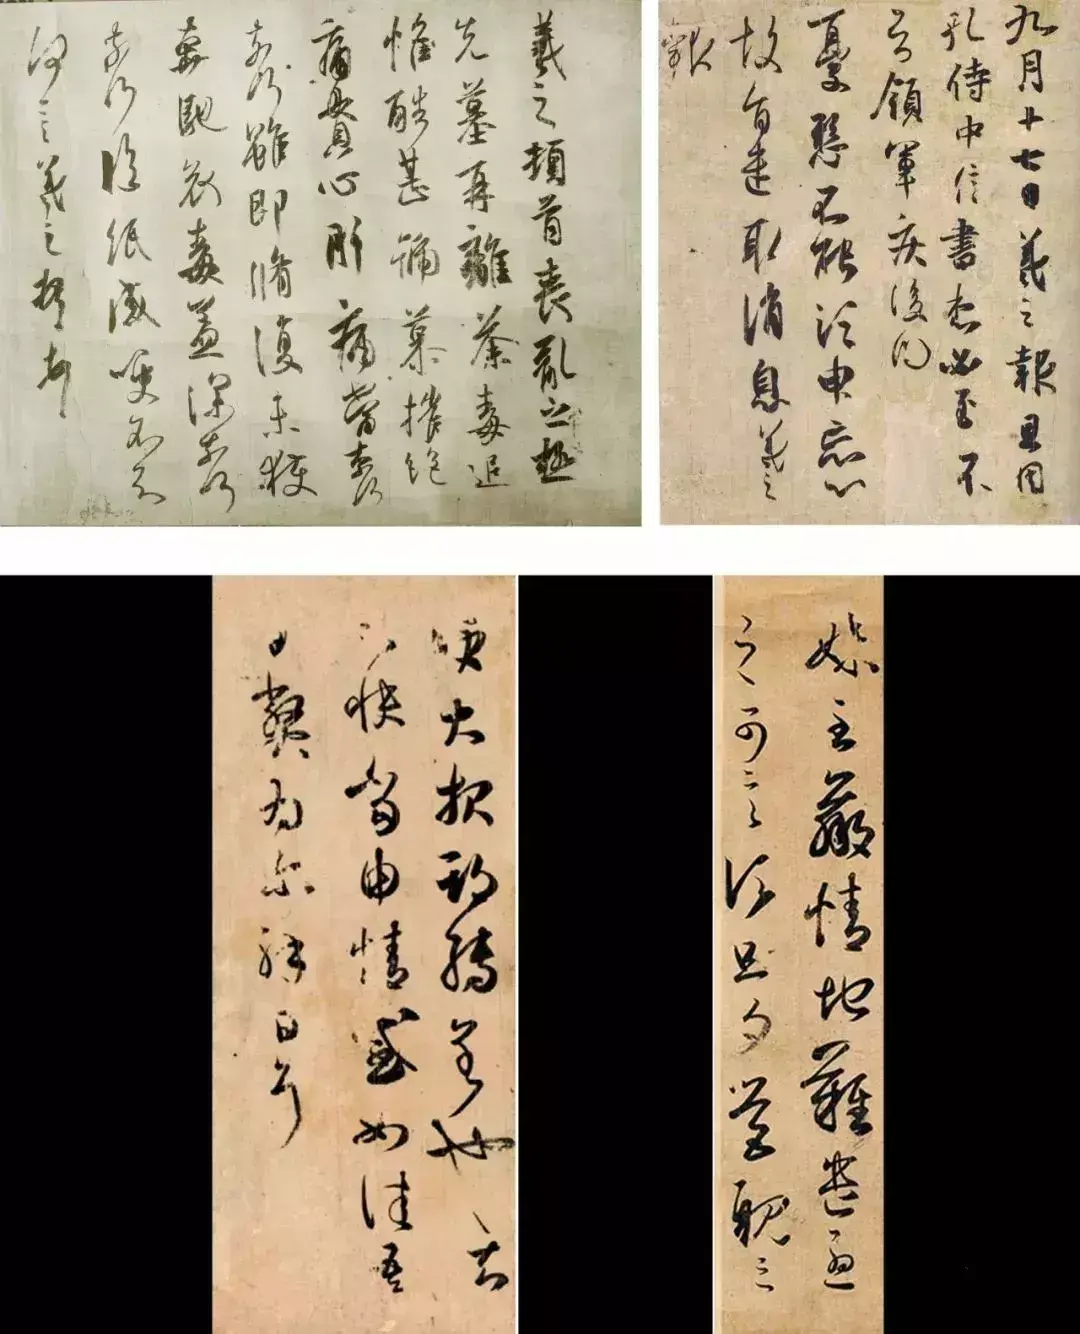 羲之頓首喪亂之極
先墓再離荼毒追
惟酷甚號慕摧絕
痛貫心肝痛當奈何
奈何雖即脩復未獲
奔馳哀毒益深奈何
奈何臨紙感哽不知
何言羲之頓首頓首
九月十七日羲之報且因
孔侍中信書想必至不
知領軍疾後問
憂懸不能須臾忘心
故旨遣取消息羲之
報
便大報期轉呈也知
不快當由情感如佳吾
日弊為爾解日耳
妹至羸情地難遣憂
之可言須旦夕營視之